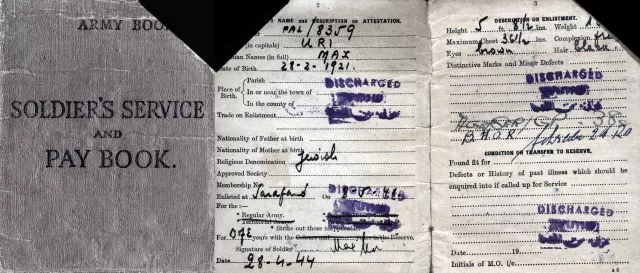 ARMY BOO
SOLDIER'S SERVICE
AND
PAY BOOK.
2
NAME and DESCRIPTION on ATTESTATION.
PAL/18359
(in capitals) URI
Names (in full) MAX
Date of Birth. 28-2-1921.
Place of Birth.
Parish
In or near the town of
In the county of
DISCHARGED
Trade on Enlistment
Nationality of Father at birth
Nationality of Mother at birth
Religious Denomination Jewish
Approved Society
Membership
Enlisted at Sarafand On
For the :—
DISCHARGED
* Regular Army.
* Strike out those inapplicable.
For years with the Colours and in the Reserve.
Signature of Soldier
Date 28-4-44
3
DESCRIPTION ON ENLISTMENT.
Height 5 ft. Weight
Maximum Chest 36½ ins. Complexion
Eyes brown Hair
Distinctive Marks and Minor Defects
DISCHARGED
CONDITION ON TRANSFER TO RESERVE.
Found fit for
Defects or History of past illness which should be
enquired into if called up for Service
DISCHARGED
Date 19
Initials of M.O. i/c.